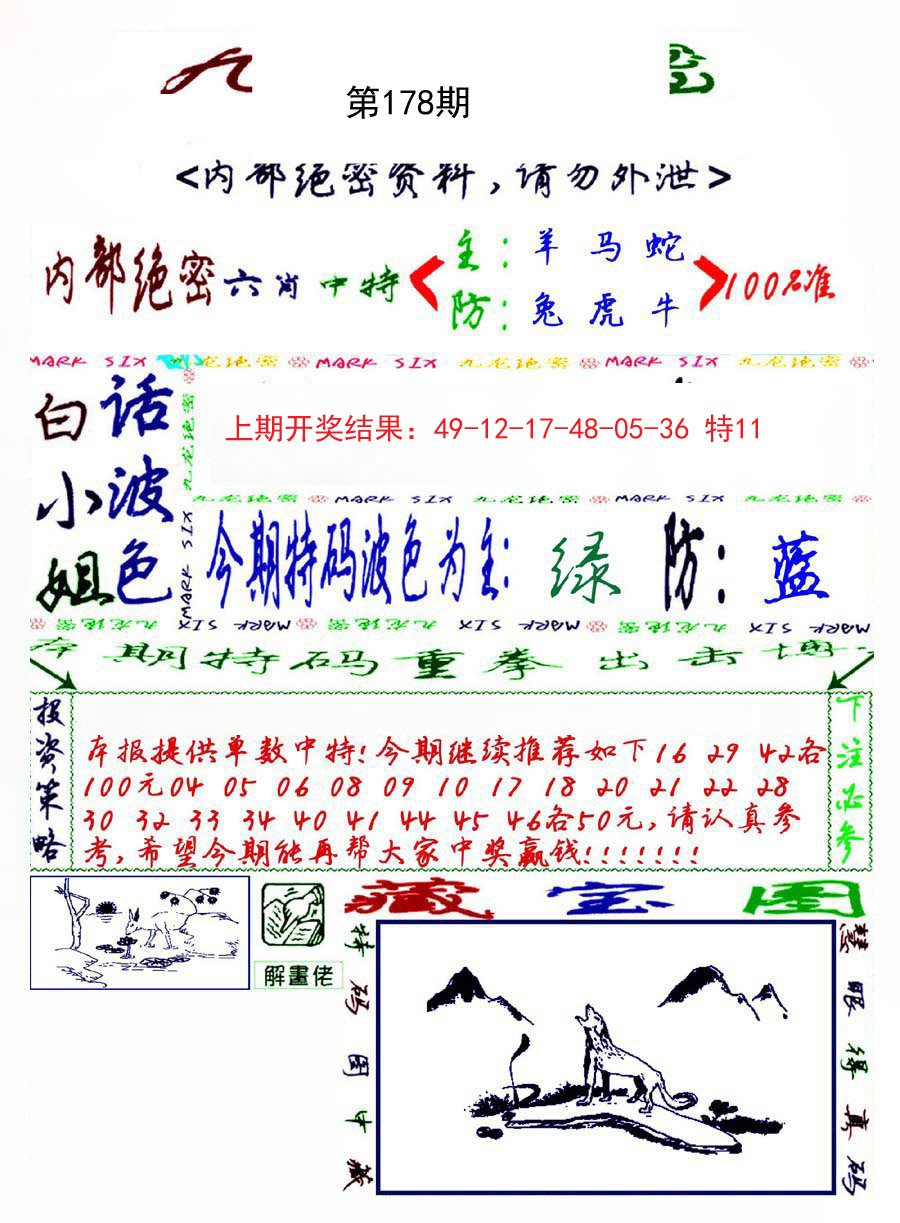 九
第178期
<内部绝密资料,请勿外泄>
内部绝密六肖中特
主:羊马蛇
防:兔虎牛
100%准
MARK SIX 九龙绝密 MARK SIX 九龙绝密 MARK SIX 九龙绝密
白小姐
话波色
九龙绝密
MARK SIX
上期开奖结果：49-12-17-48-05-36 特11
九龙绝密 MARK SIX 九龙绝密 MARK SIX 九龙绝密
今期特码波色为主:绿 防:蓝
九龙绝密 MARK SIX 九龙绝密 MARK SIX 九龙绝密 MARK SIX
本期特码重拳出击博
投资策略
本报提供单数中特!今期继续推荐如下16 29 42各
100元04 05 06 08 09 10 17 18 20 21 22 28
30 32 33 34 40 41 44 45 46各50元,请认真参
考,希望今期能再帮大家中奖赢钱!!!!!!!
下注必参
解畫佬
藏宝图
特码图中藏
慧眼得真码